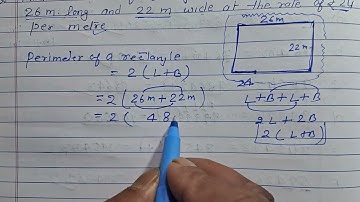 26m long and 22 m wide at the rate of ₹ 24
per metre
26m
22m
24
Perimeter of a rectangle
= 2 ( L+B )
= 2 ( 26m + 22m )
= 2 ( 48
L+B+L+B
2L + 2B
2 ( L+B )